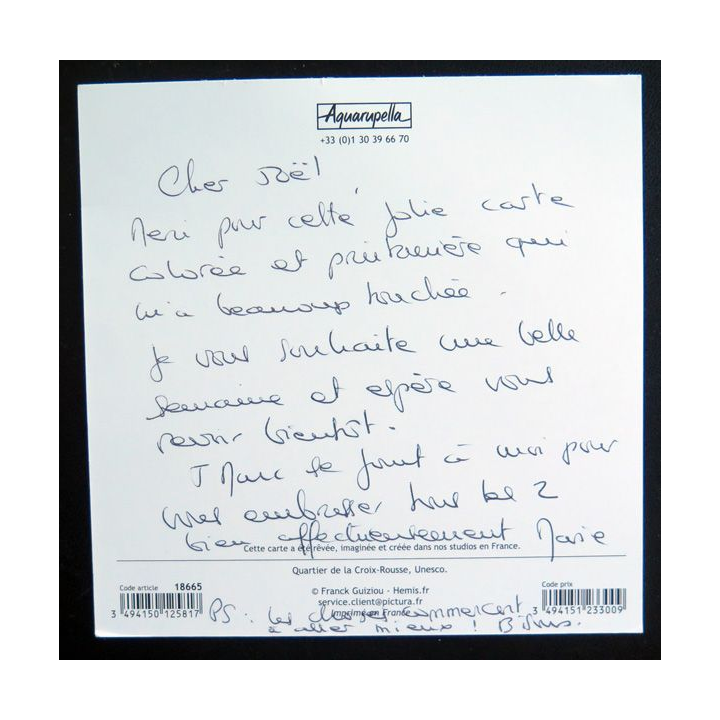 Aquarupella
+33 (0)1 30 39 66 70
Cher Joël,
Merci pour cette jolie carte
colorée et printanière qui
m'a beaucoup touchée.
Je vous souhaite une belle
semaine et espère vous
revoir bientôt.
J Marc se joint à moi pour
vous embrasser tous les 2
bien affectueusement Marie
Cette carte a été rêvée, imaginée et créée dans nos studios en France.
Quartier de la Croix-Rousse, Unesco.
Code article 18665
3 494150 125817
© Franck Guiziou - Hemis.fr
service.client@pictura.fr
Imprimé en France
Code prix
3 494151 233009
PS : les choses commencent
à aller mieux ! Bisous.